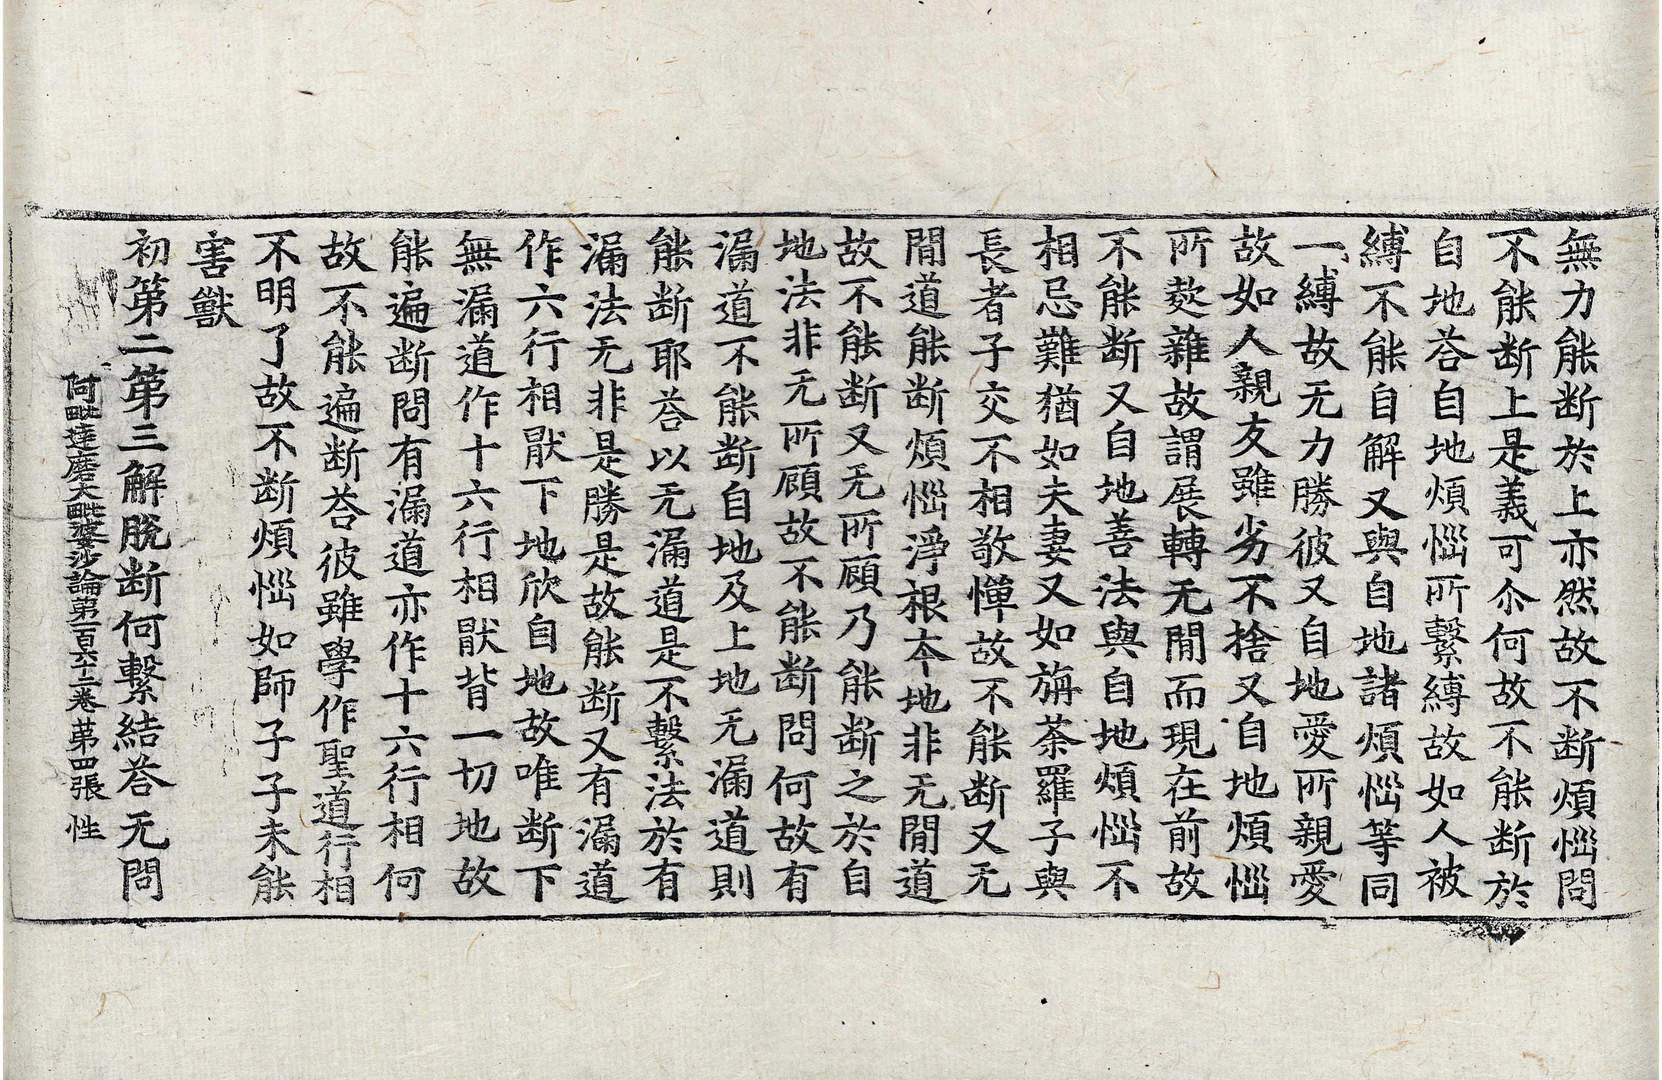 無力能断於上亦然故不断煩惱問
不能断上是義可尒何故不能断於
自地荅自地煩惱所繫縛故如人被
縛不能自解又與自地諸煩惱等同
一縛故无力勝彼又自地愛所親愛
故如人親友雖劣不捨又自地煩惱
所㱿雜故謂展轉无閒而現在前故
不能断又自地善法與自地煩惱不
相忌難猶如夫妻又如旃荼羅子與
長者子交不相敬憚故不能断又无
閒道能断煩惱淨根本地非无閒道
故不能断又无所顧乃能断之於自
地法非无所顧故不能断問何故有
漏道不能断自地及上地无漏道則
能断耶荅以无漏道是不繫法於有
漏法无非是勝是故能断又有漏道
作六行相猒下地欣自地故唯断下
無漏道作十六行相猒背一切地故
能遍断問有漏道亦作十六行相何
故不能遍断荅彼雖學作聖道行相
不明了故不断煩惱如師子子未能
害獸
初第二第三解脫断何繫結荅无問
阿毗達磨大毗婆沙論第一百六十二卷 第四張 性